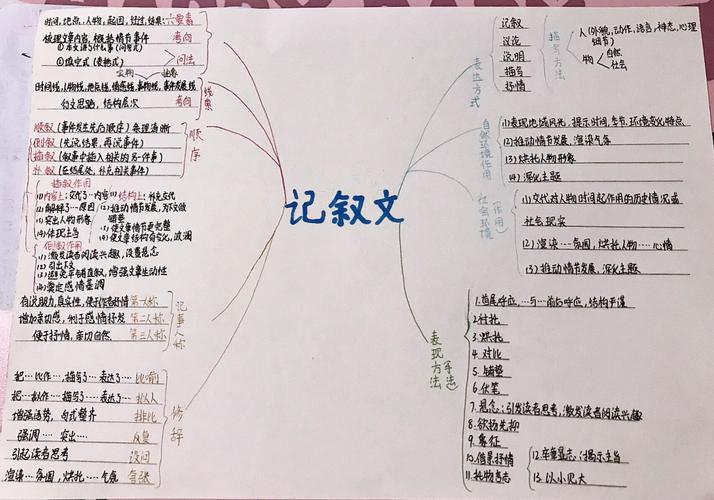 记叙文
时间，地点，人物，起因，经过，结果：六要素
梳理文章内容，概括情节事件 考向
①本文讲了什么事（问答式）
②填空式（表格式） 问法
实物 抽象
时间线，人物线，地点线，情感线，事物线，事件发展线
行文思路，结构层次 考向
线索
顺叙（事件发生先后顺序）条理清晰
倒叙（先说结果，再说事件）
插叙（叙事中插入相关的另一件事）
补叙（在结尾处，补充相关事件）
顺序
插叙作用
(1)内容上：交代了…内容
(2)解释了…原因
(3)突出人物形象
(4)体现主旨
结构上：补充交代
(2)推动情节发展，为下文做
铺垫
(3)使文章情节更完整
(4)使文章结构富变化，波澜
倒叙作用
(1)激发读者阅读兴趣，设置悬念
(2)引出下文
(3)避免平铺直叙，增强文章生动性
(4)奠定感情基调
有说服力，真实性，便于作者抒情 第一人称
增加亲切感，利于感情抒发 第二人称
便于抒情，亲切自然 第三人称
记事人称
把…比作…，描写了…表达了… 比喻
把…拟作…，描写了…表达了… 拟人
增强语势，句式整齐 排比
强调…突出… 反复
引起读者思考 设问
渲染…氛围，烘托…气氛 夸张
修辞
表达方式
记叙
议论
说明
描写
抒情
描写方法
人（外貌，动作，语言，神态，心理
细节）
物 自然
社会
自然环境作用
(1)表现地域风光，提示时间，季节，环境变化特点
(2)推动情节发展，渲染气氛
(3)烘托人物形象
(4)深化主题
社会环境（作用）
(1)交代对人物时间起作用的历史情况或
社会现实
(2)渲染…氛围，烘托人物…心情
(3)推动情节发展，深化主题
表现手法
方法
1.首尾呼应，…与…前后呼应，结构严谨
2.衬托
3.烘托
4.对比
5.铺垫
6.伏笔
7.悬念：引发读者思考，激发读者阅读兴趣
8.欲扬先抑
9.象征
10.借景抒情
11.托物言志
12.卒章显志：揭示主旨
13.以小见大